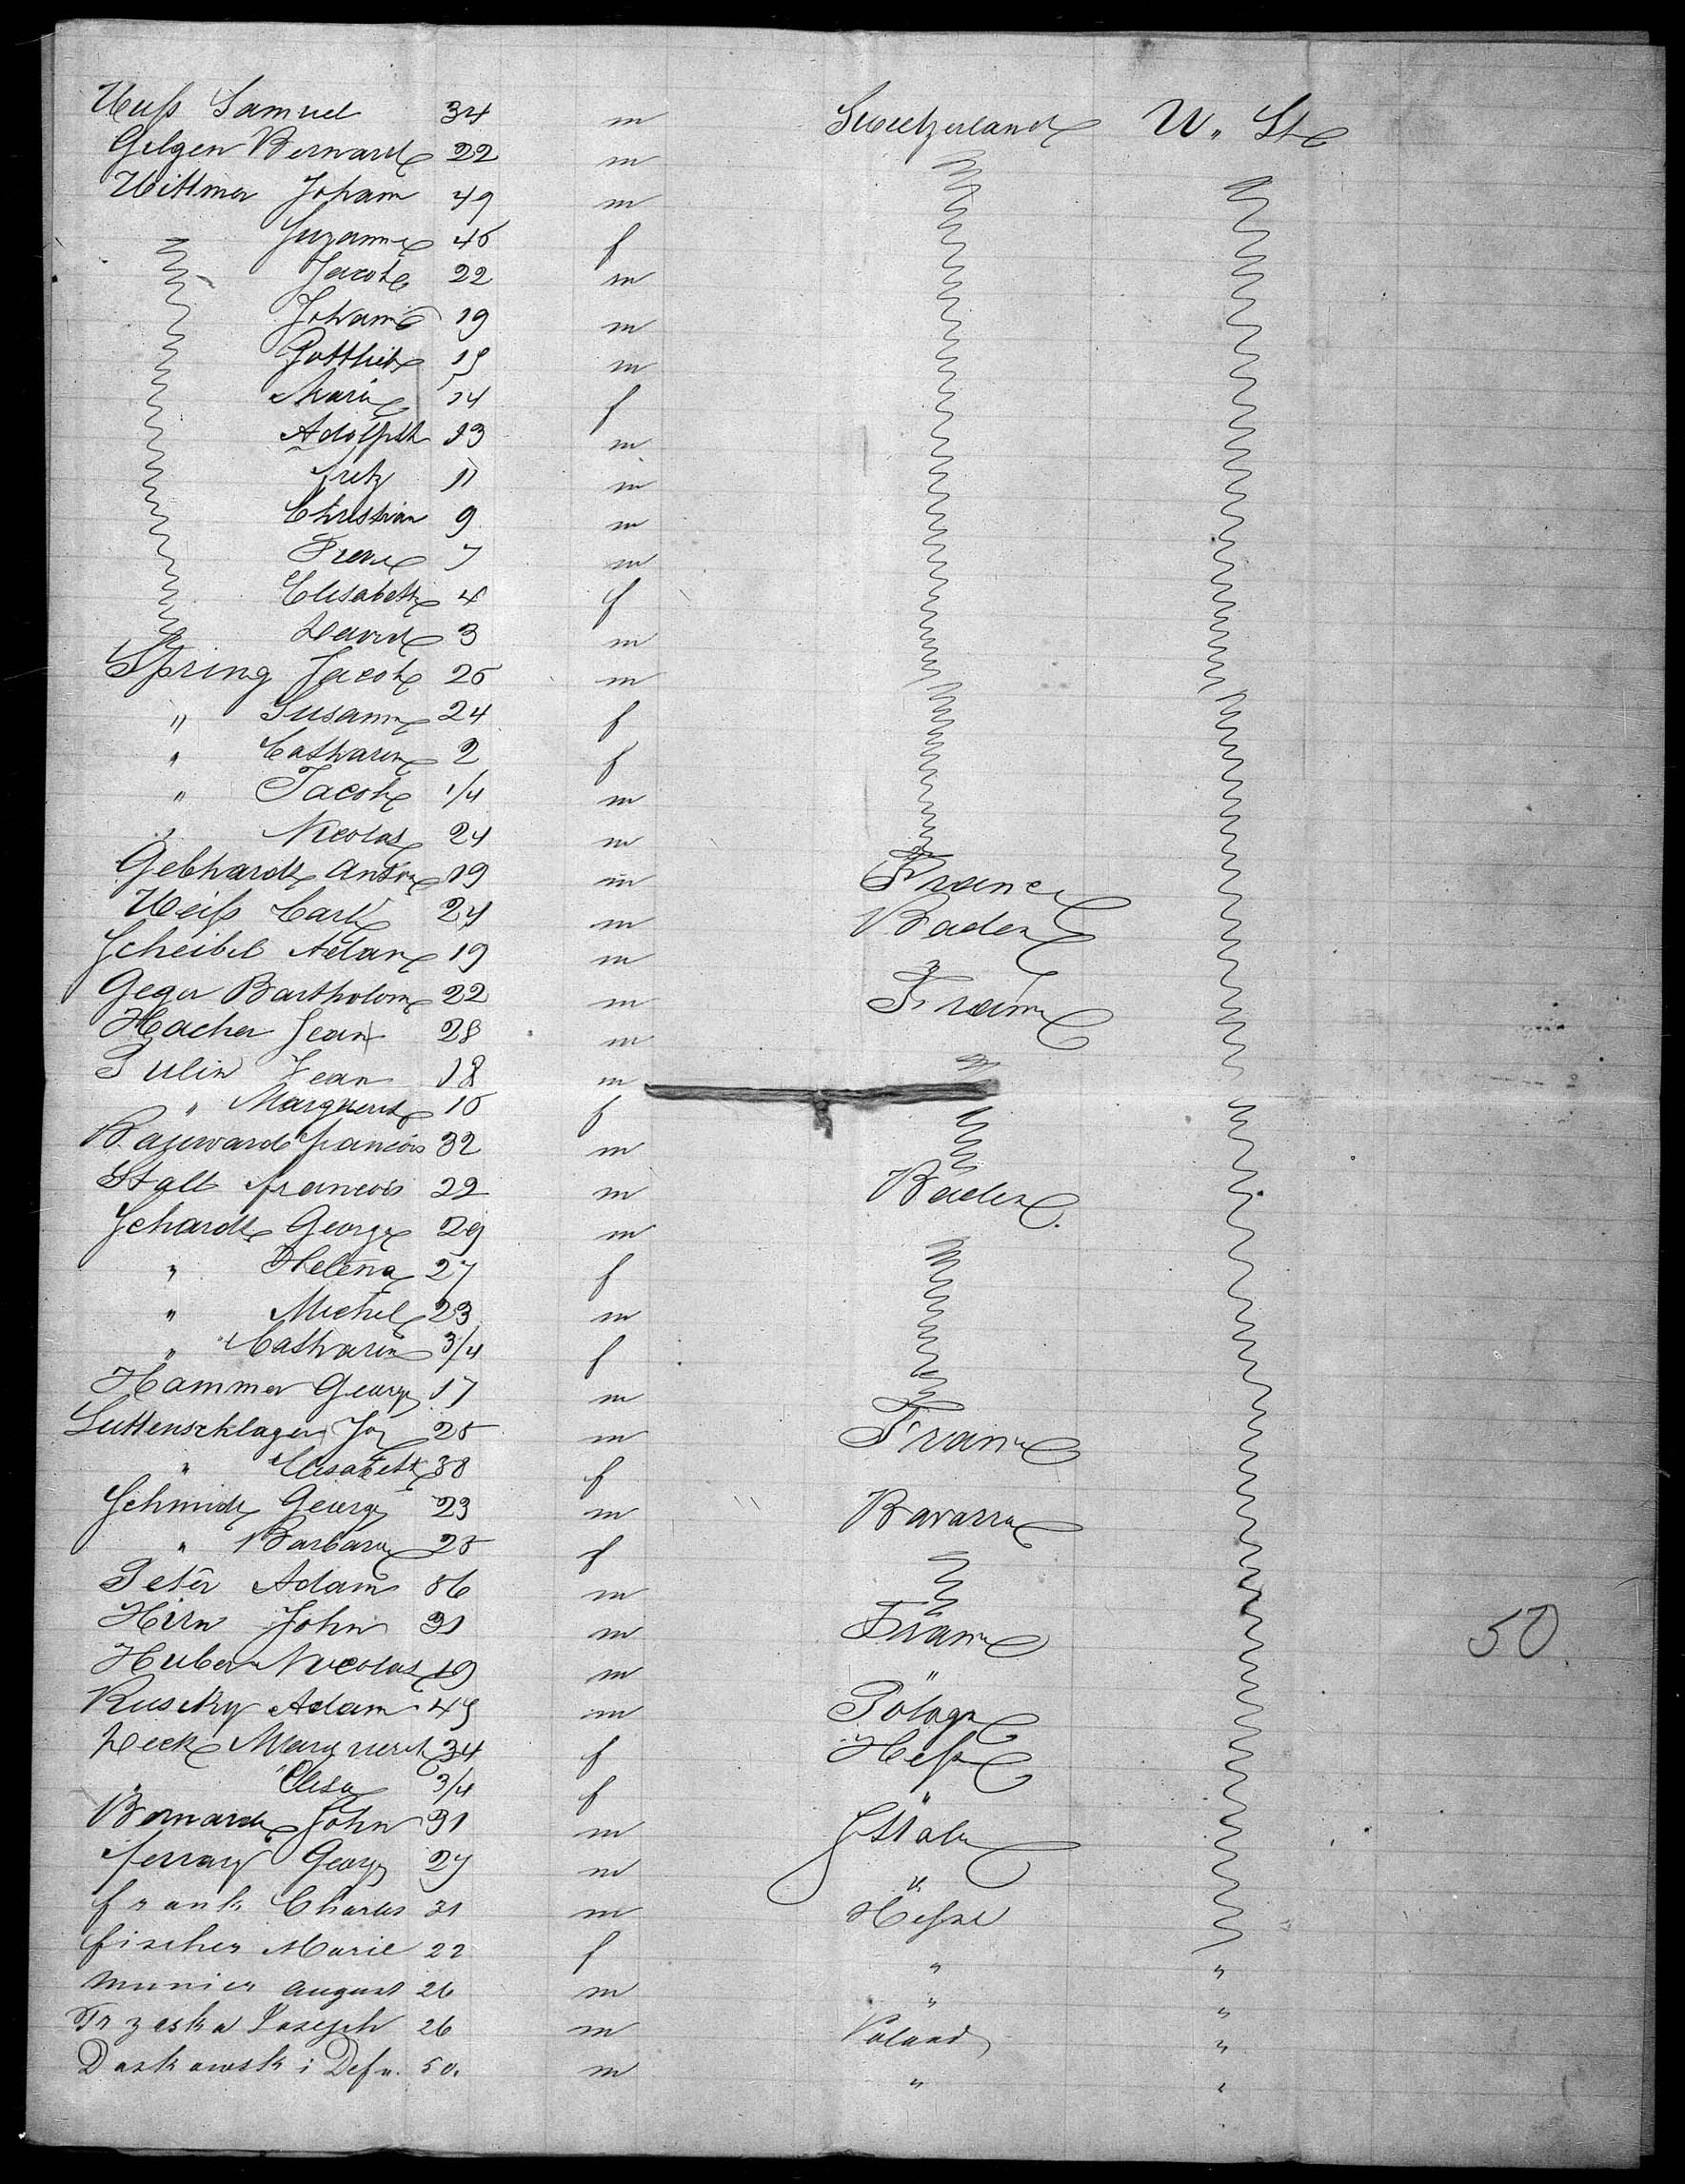 Samuel 34 m Sweetzerland U. St
Gilgen Bernard 22 m
Wittmer Joham 49 m
Suzanne 45 f
Jacob 22 m
Joham 19 m
Gottlieb 15 m
Marie 14 f
Adolph 13 m
Fritz 11 m
Christian 9 m
7 m
Elisabeth 4 f
David 3 m
Spring Jacob 25 m
" Susanne 24 f
" Catharin 2 f
" Jacob 1/4 m
" Nicolas 24 m
Gebhardt Anton 19 m France
Weiss Carl 24 m Baden
Scheibel Adam 19 m
Geger Bartholom 22 m France
Hacher Jean 28 m
Jean 18 m
" Marguerit f
32 m
Stalt Francois 22 m Baden
Schardt George 29 m
" Helena 27 f
" Michel 23 m
" Catharin 3/4 f
Hammer George 17 m
Luttenschlager 25 m France
" Elisabeth 38 f
Schmidt George 23 m Bavaria
" Barbara 25 f
Peter Adam 56 m
Hirn John 31 m France 50
Huber Nicolas 19 m "
Adam 45 m Pologn
Marguerit 34 f Hesse
" Elisa 3/4 f "
Bernard John 31 m
George 27 m "
Frank Charles 31 m Hesse
Fischer Marie 22 f " "
Munier August 26 m " "
Trzaska Joseph 26 m Poland "
Daskowski 50. m " "